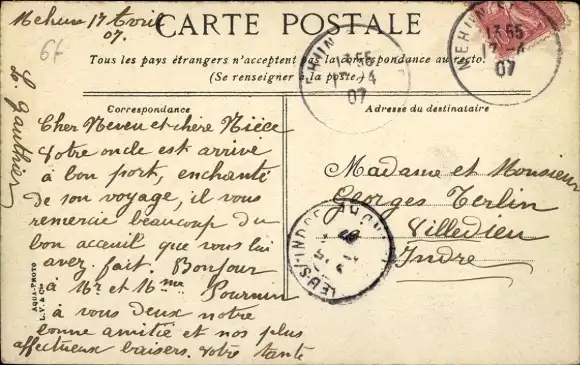 Mehun 17 Avril
07.
CARTE POSTALE
Tous les pays étrangers n'acceptent pas la correspondance au recto.
(Se renseigner à la poste.)
MEHUN
13 55
17-4
07
MEHUN
13 55
17-4
07
Correspondance
Adresse du destinataire
Cher Neveu et chère Nièce
Votre oncle est arrivé
à bon port, enchanté
de son voyage, il vous
remercie beaucoup du
bon acceuil que vous lui
avez fait. Bonjour
à Mr et Mme Pournin
à vous deux notre
bonne amitié et nos plus
affectueux baisers. Votre tante
L. Gauthier
Madame et Monsieur
Georges Terlin
Villedieu
Indre
INDRE
07
AQUA-PHOTO
L.V. & Cie